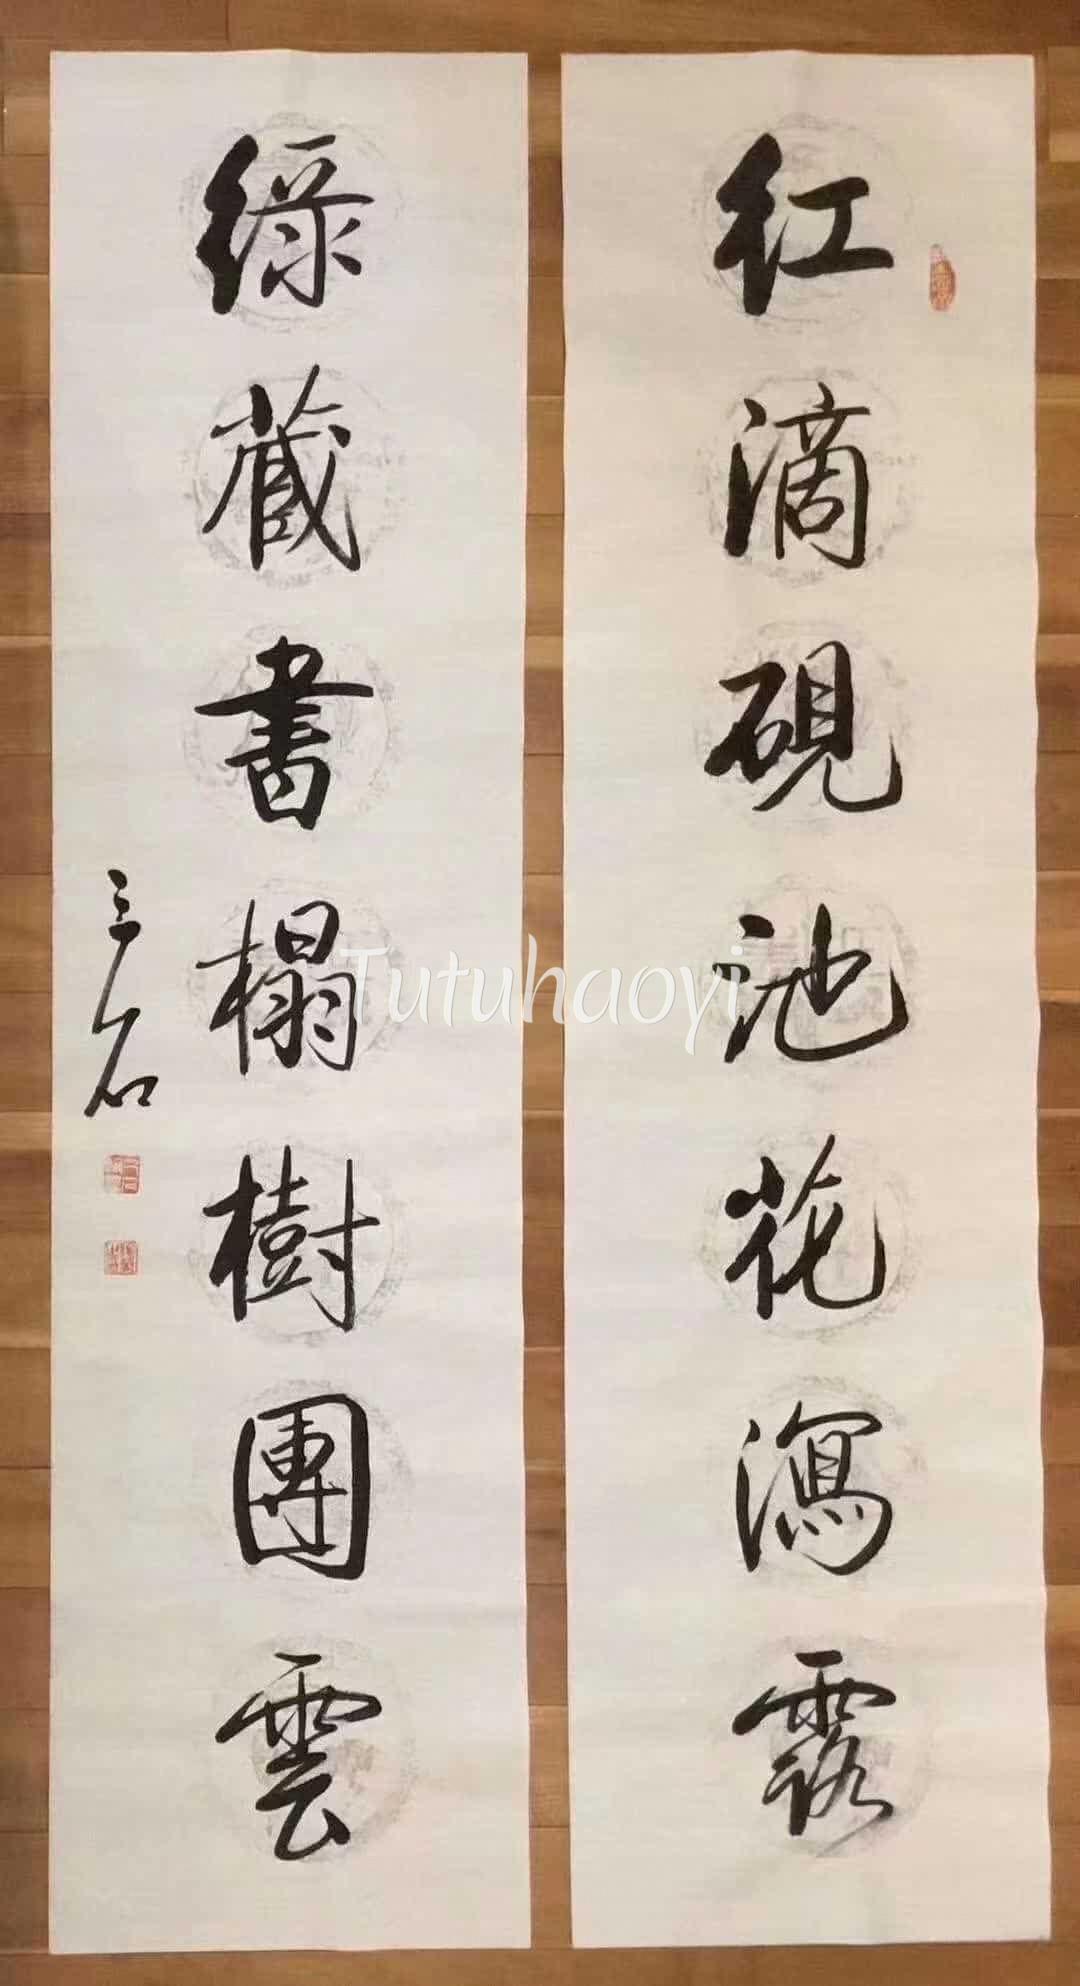 紅滴硯池花瀉露
綠藏書榻樹團雲
三石
Tutuhaoyi